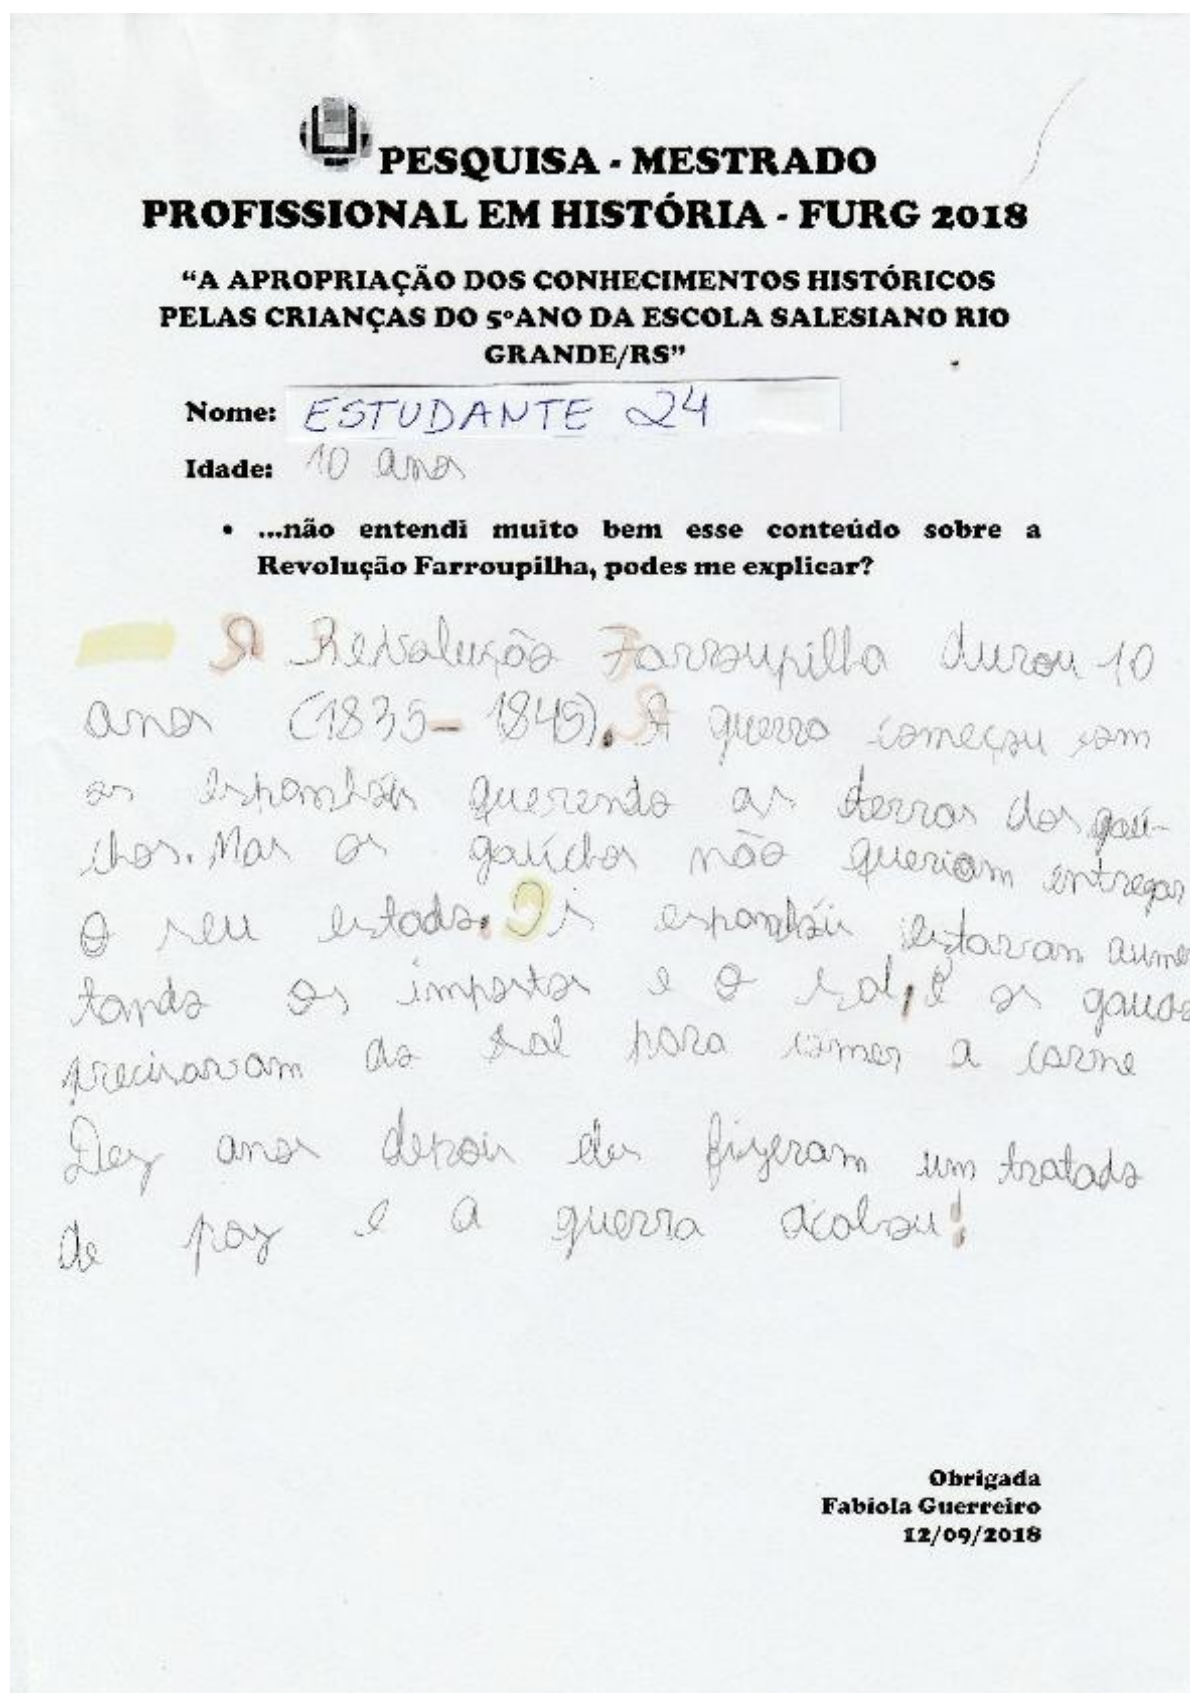 PESQUISA - MESTRADO
PROFISSIONAL EM HISTÓRIA - FURG 2018
“A APROPRIAÇÃO DOS CONHECIMENTOS HISTÓRICOS
PELAS CRIANÇAS DO 5ºANO DA ESCOLA SALESIANO RIO
GRANDE/RS”
Nome: ESTUDANTE 24
Idade: 10 anos
• ...não entendi muito bem esse conteúdo sobre a
Revolução Farroupilha, podes me explicar?
A Revolução Farroupilha durou 10
anos (1835-1845). A guerra começou com
os espanhóis querendo as terras dos gaú-
chos. Mas os gaúchos não queriam entregar
o seu estado. Os espanhóis estavam aume
tando os impostos e o sal, e os
precisavam do sal para comer a carne
Dez anos depois eles fizeram um tratado
de paz e a guerra acabou!
Obrigada
Fabiola Guerreiro
12/09/2018